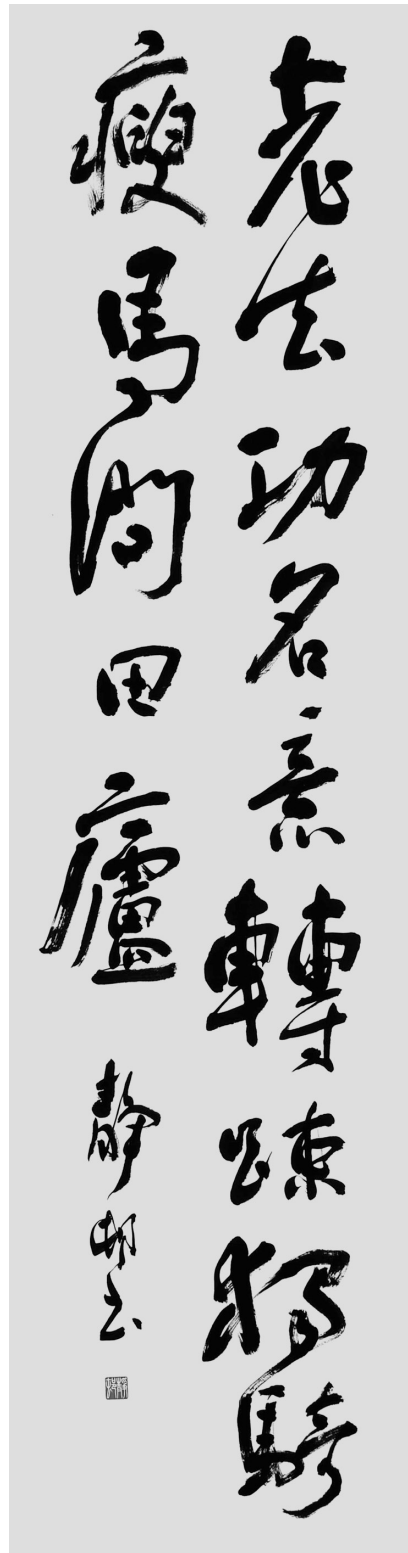 老去功名意轉踈獨騎
瘦馬問田廬
靜邨書